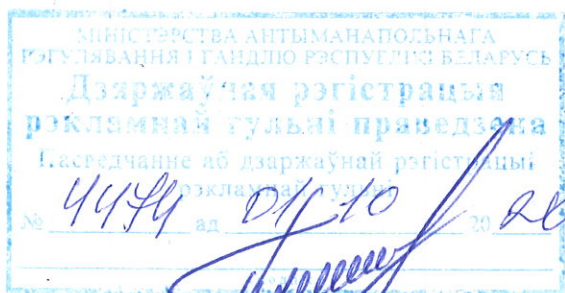 МІНІСТЭРСТВА АНТЫМАНАПОЛЬНАГА
РЭГУЛЯВАННЯ І ГАНДЛЮ РЭСПУБЛІКІ БЕЛАРУСЬ
Дзяржаўная рэгістрацыя
рэкламнай гульні праведзена
Пасведчанне аб дзяржаўнай рэгістрацыі
рэкламнай гульні
№ 4474 ад 01/10 20